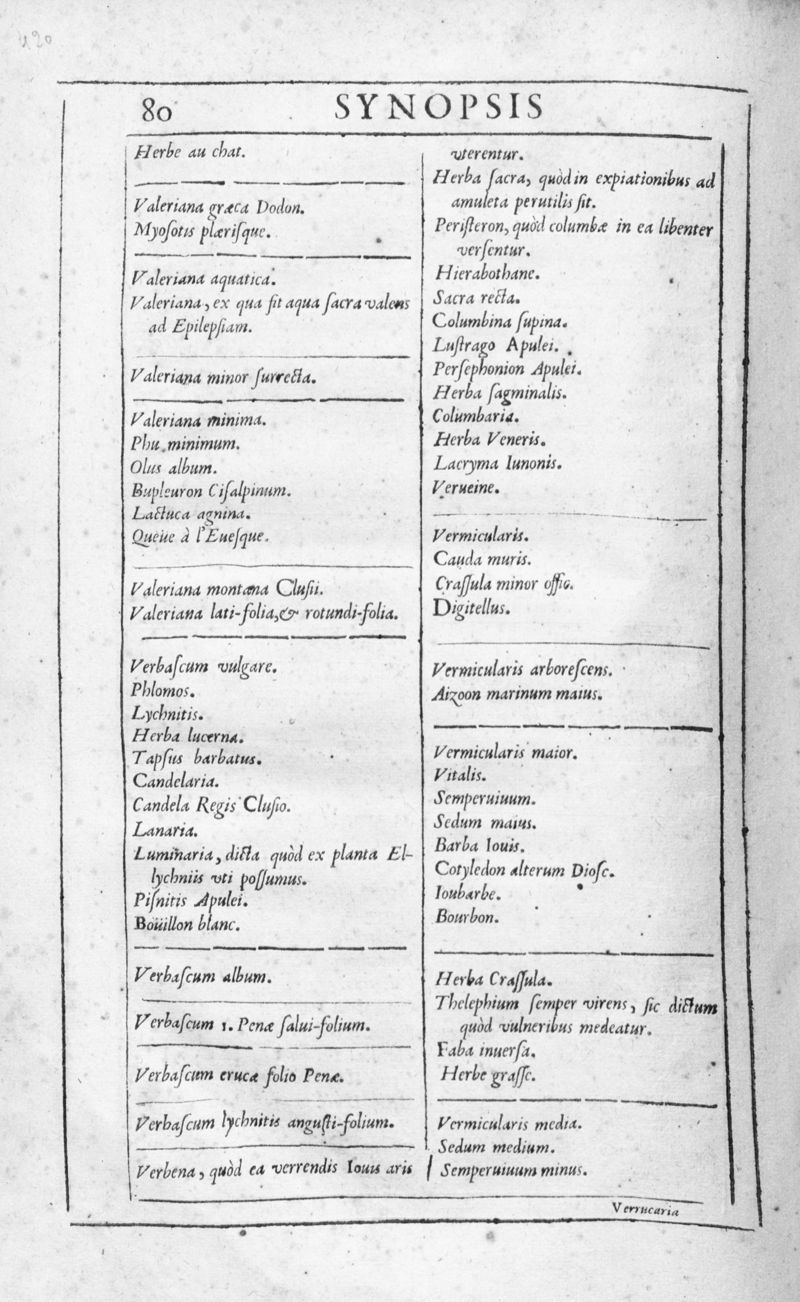 120
80 SYNOPSIS
Herbe au chat.
Valeriana græca Dodon.
Myoſotis plæriſque.
Valeriana aquatica.
Valeriana, ex qua fit aqua ſacra valens
ad Epilepſiam.
Valeriana minor ſurrecta.
Valeriana minima.
Phu minimum.
Olus album.
Bupleuron Ciſalpinum.
Lactuca agnina.
Queüe à l'Eueſque.
Valeriana montana Cluſii.
Valeriana lati-folia, & rotundi-folia.
Verbaſcum vulgare.
Phlomos.
Lychnitis.
Herba lucerna.
Tapſus barbatus.
Candelaria.
Candela Regis Cluſio.
Lanaria.
Luminaria, dicta quòd ex planta El-
lychniis vti poſſumus.
Piſnitis Apulei.
Boüillon blanc.
Verbaſcum album.
Verbaſcum 1. Penæ ſalui-folium.
Verbaſcum erucæ folio Penæ.
Verbaſcum lychnitis anguſti-folium.
Verbena, quòd ea verrendis Iouis aris
vterentur.
Herba ſacra, quòd in expiationibus ad
amuleta perutilis ſit.
Periſteron, quòd columbæ in ea libenter
verſentur.
Hierabothane.
Sacra recta.
Columbina ſupina.
Luſtrago Apulei.
Perſephonion Apulei.
Herba ſagminalis.
Columbaria.
Herba Veneris.
Lacryma Iunonis.
Verueine.
Vermicularis.
Cauda muris.
Craſſula minor offic.
Digitellus.
Vermicularis arboreſcens.
Aizoon marinum maius.
Vermicularis maior.
Vitalis.
Semperuiuum.
Sedum maius.
Barba Iouis.
Cotyledon alterum Dioſc.
Ioubarbe.
Bourbon.
Herba Craſſula.
Thelephium ſemper virens, ſic dictum
quòd vulneribus medeatur.
Faba inuerſa.
Herbe graſſe.
Vermicularis media.
Sedum medium.
Semperuiuum minus.
Verrucaria